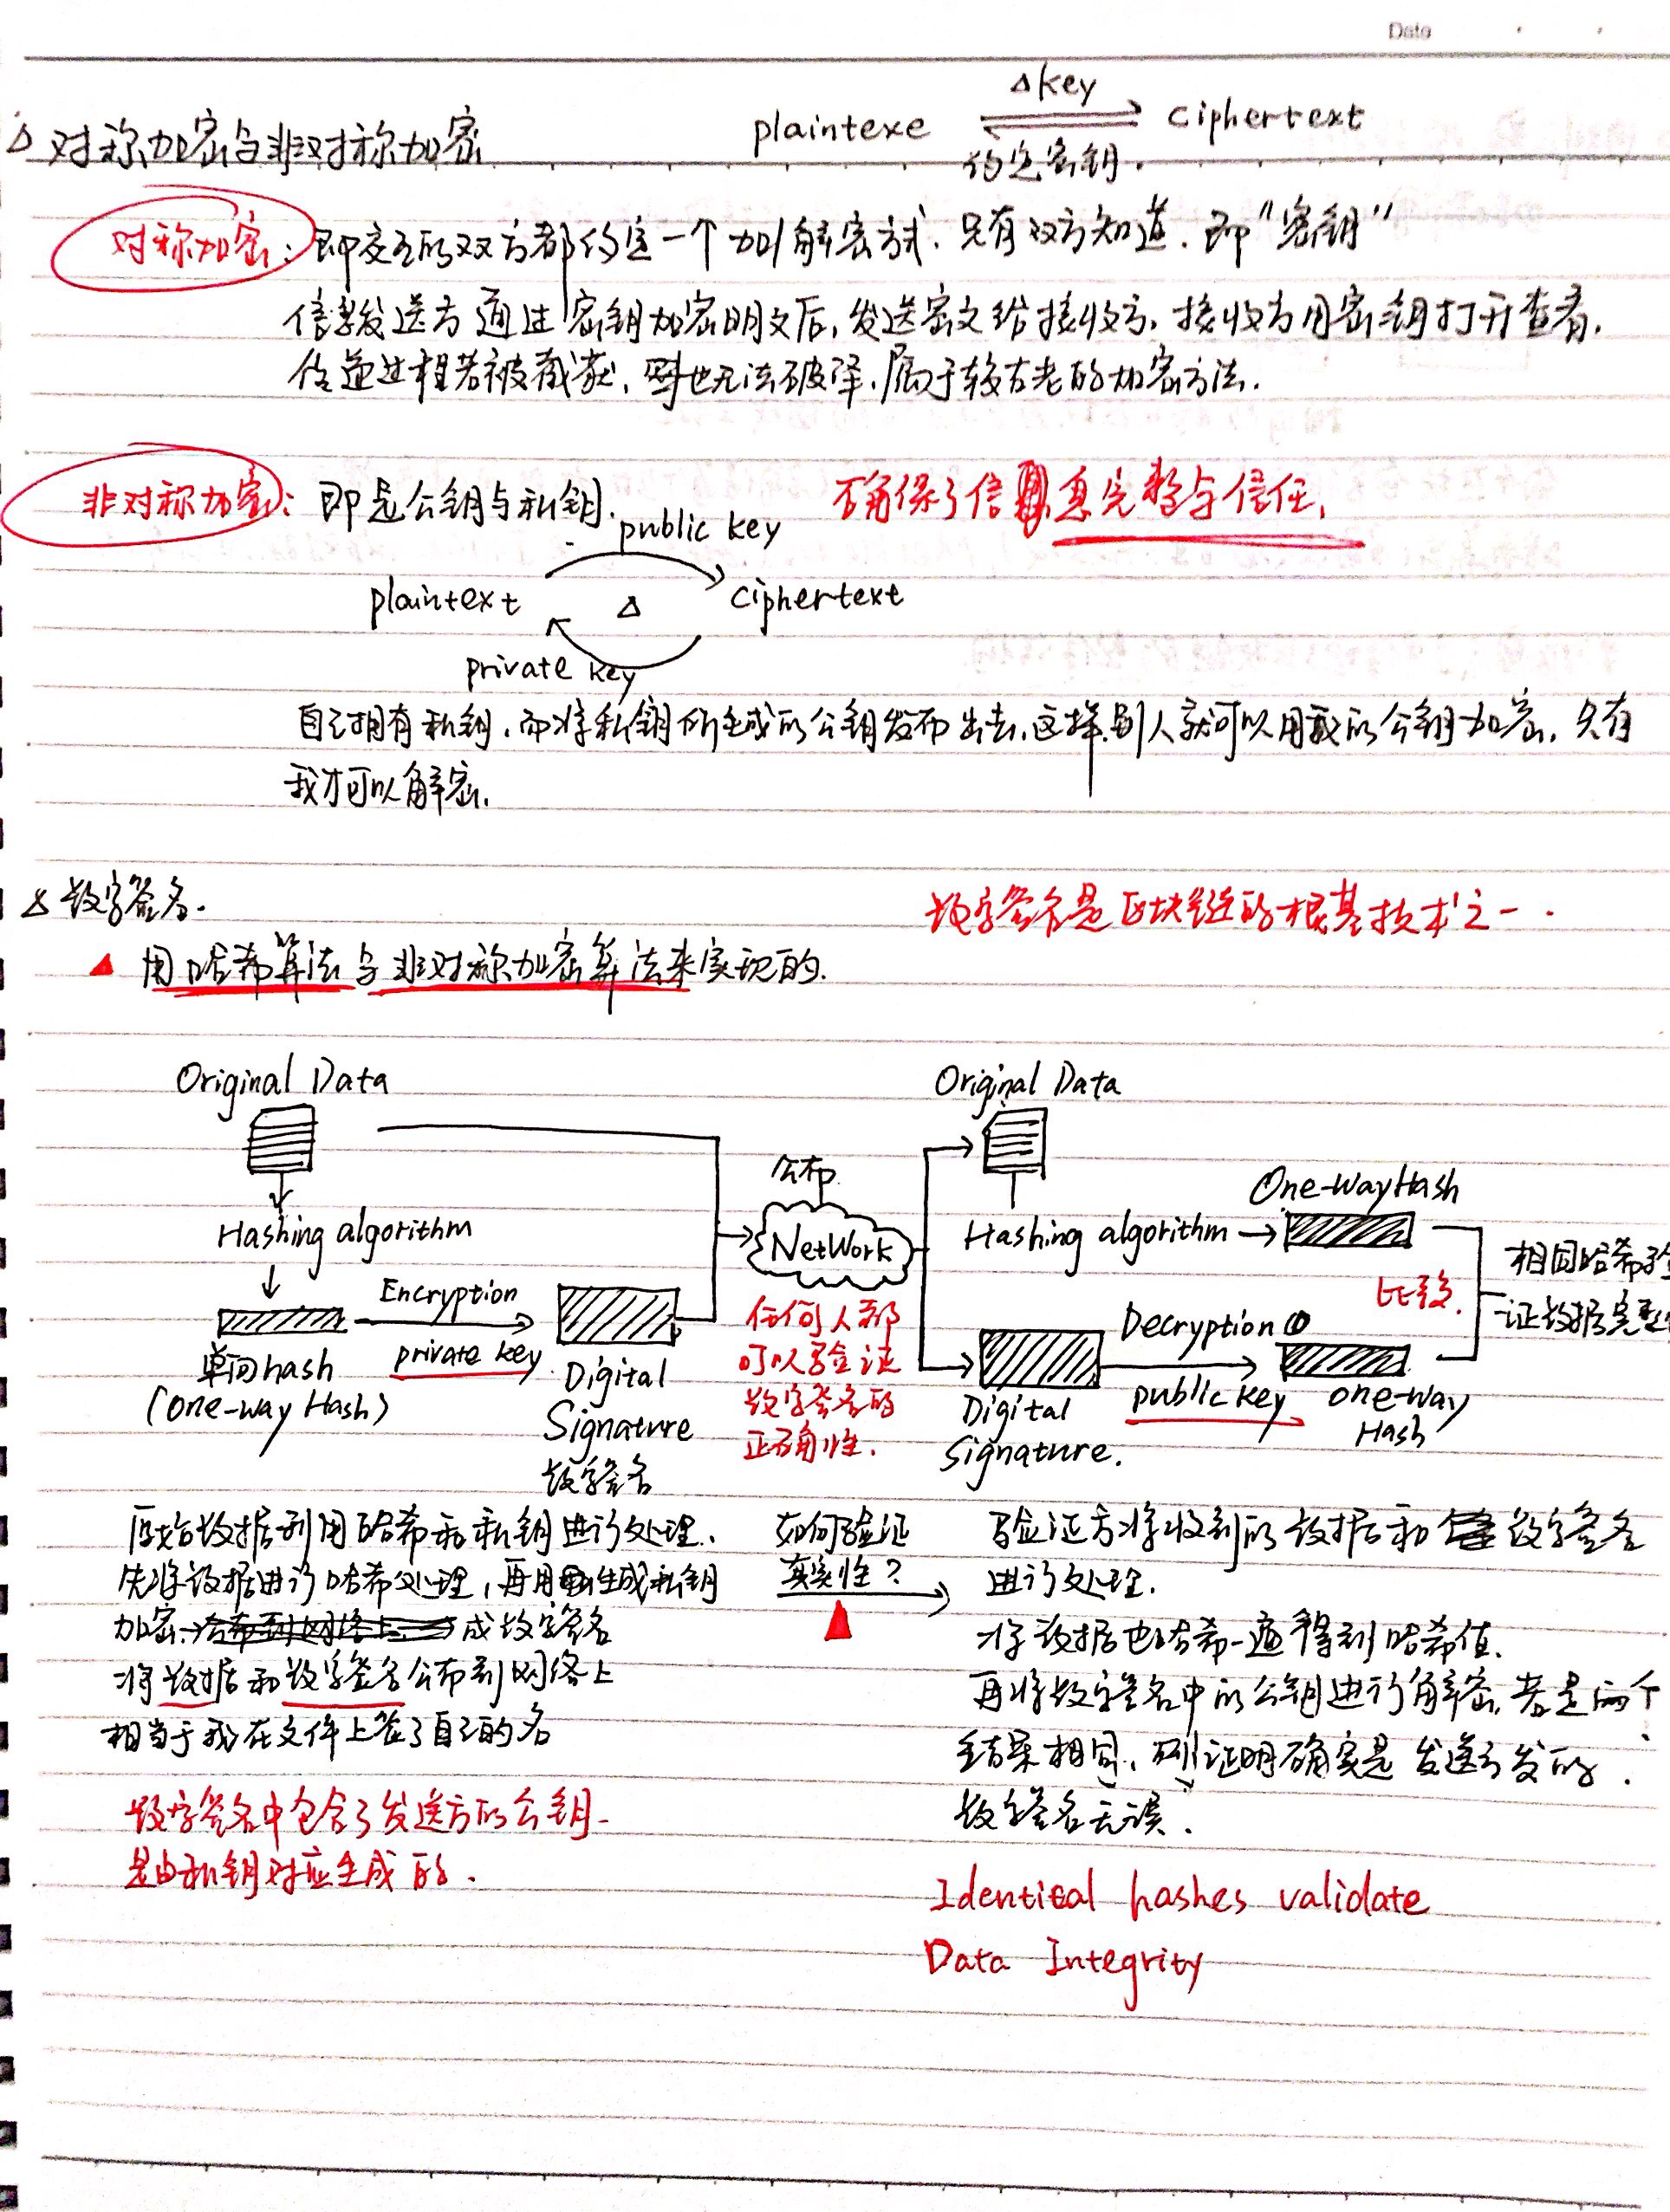 Date
△ 对称加密与非对称加密
plaintexe
△key
ciphertext
约定密钥.
对称加密: 即交互的双方都约定一个加/解密方式. 只有双方知道. 即"密钥"
信息发送方通过密钥加密明文后, 发送密文给接收方. 接收方用密钥打开查看.
传递过程若被截获, 也无法破译. 属于较古老的加密方法.
非对称加密: 即是公钥与私钥.
确保了信息完整与信任.
public key
plaintext
△
ciphertext
private key
自己拥有私钥. 而将私钥所生成的公钥发布出去. 这样别人就可以用我的公钥加密. 只有
我才可以解密.
△ 数字签名.
数字签名是区块链的根基技术之一.
用哈希算法与非对称加密算法来实现的.
Original Data
Hashing algorithm
单向hash
(One-way Hash)
Encryption
private key
Digital
Signature
数字签名
公布
NetWork
任何人都
可以验证
数字签名的
正确性.
Original Data
Hashing algorithm
One-Way Hash
Digital
Signature.
Decryption
public key
one-way
Hash
比较.
相同哈希验
证数据完整
原始数据利用哈希和私钥进行处理.
先将数据进行哈希处理, 再用生成私钥
加密→成数字签名
将数据和数字签名公布到网络上
相当于我在文件上签了自己的名
数字签名中包含了发送方的公钥
是由私钥对应生成的.
如何验证
真实性?
验证方将收到的数据和数字签名
进行处理.
将数据也哈希一遍得到哈希值.
再将数字签名中的公钥进行解密. 若是两个
结果相同, 则证明确实是发送方发的.
数字签名无误.
Identical hashes validate
Data Integrity